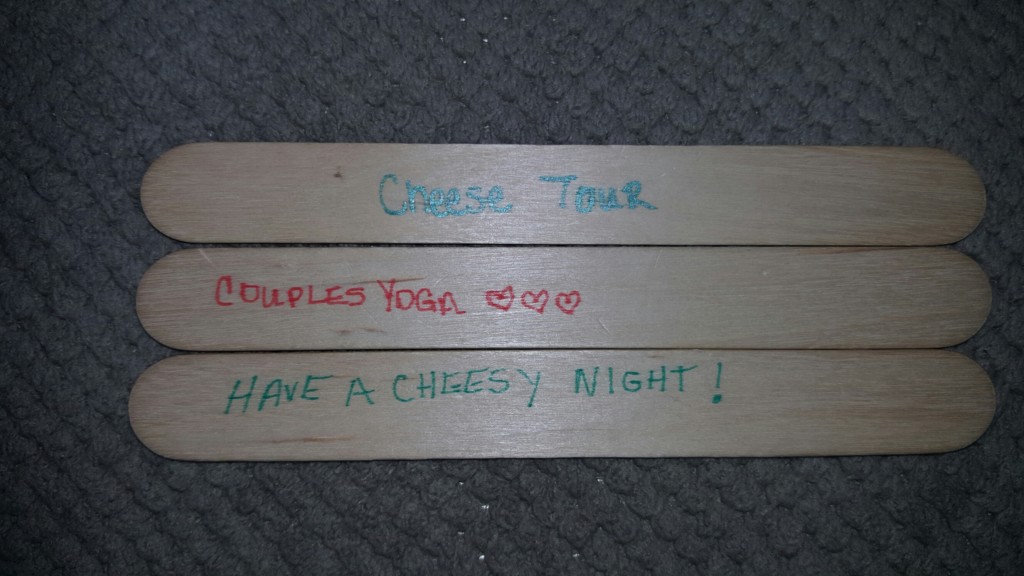 Cheese Tour
COUPLES YOGA ♡♡♡
HAVE A CHEESY NIGHT!